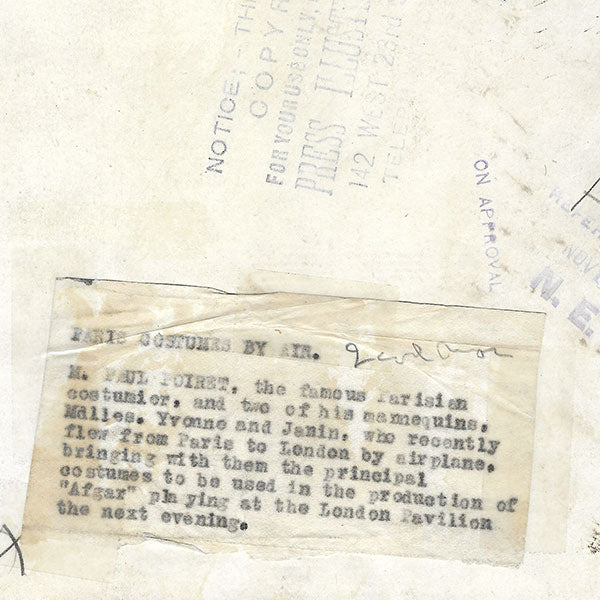 NOTICE: - TH
COPYR
FOR YOUR USE ONLY,
PRESS ILLUST
142 WEST 23rd S
TELE
ON APPROVAL
REFER
NOV
N. E.
PARIS COSTUMES BY AIR.
M. PAUL POIRET, the famous Parisian
costumier, and two of his mannequins,
Mdlles. Yvonne and Janin, who recently
flew from Paris to London by airplane,
bringing with them the principal
costumes to be used in the production of
"Afgar" playing at the London Pavilion
the next evening.
X